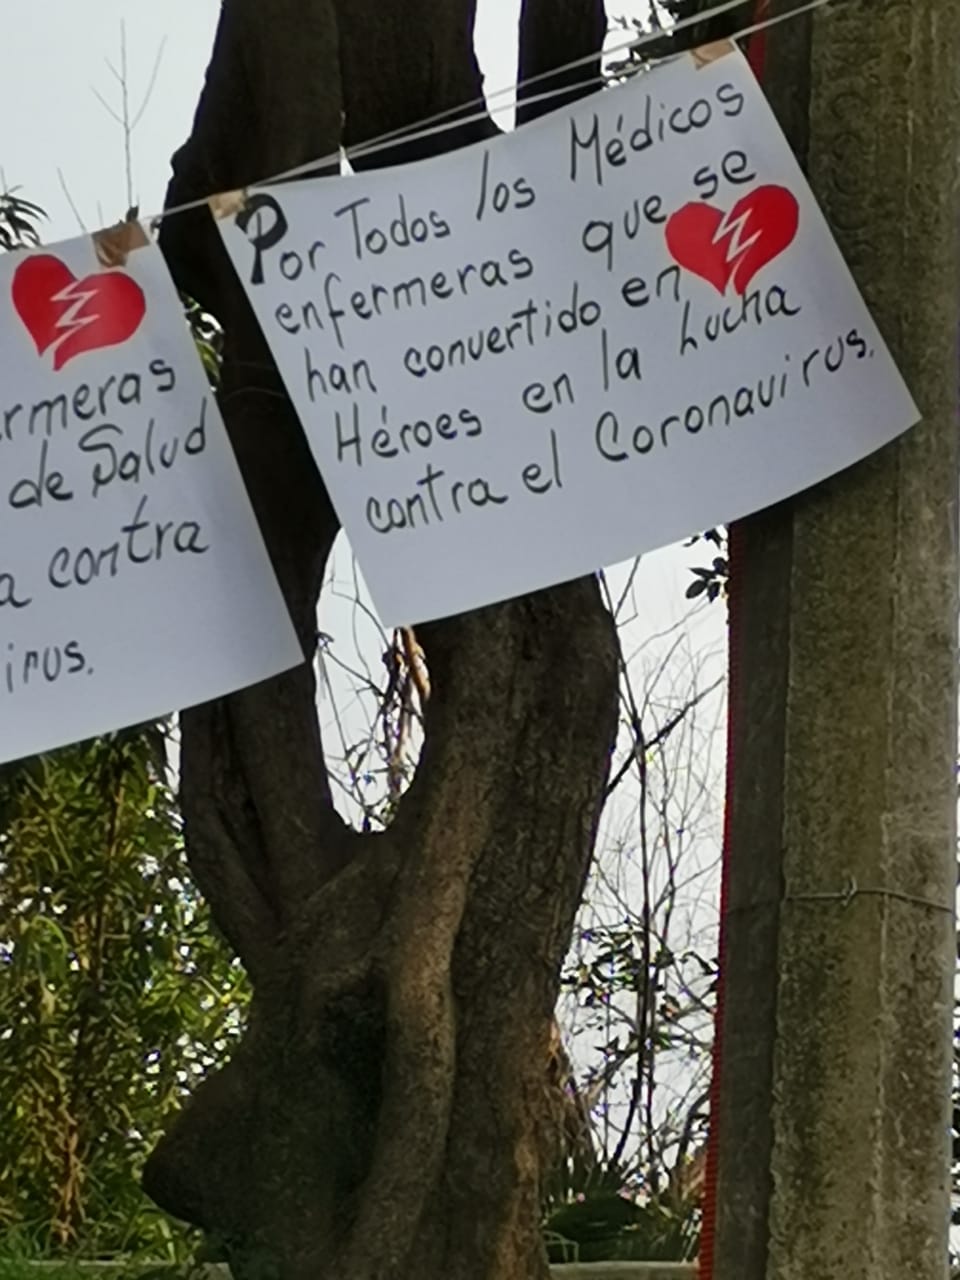 rmeras
de Salud
a contra
irus.
Por Todos los Médicos
enfermeras que se
han convertido en
Héroes en la Lucha
contra el Coronavirus.